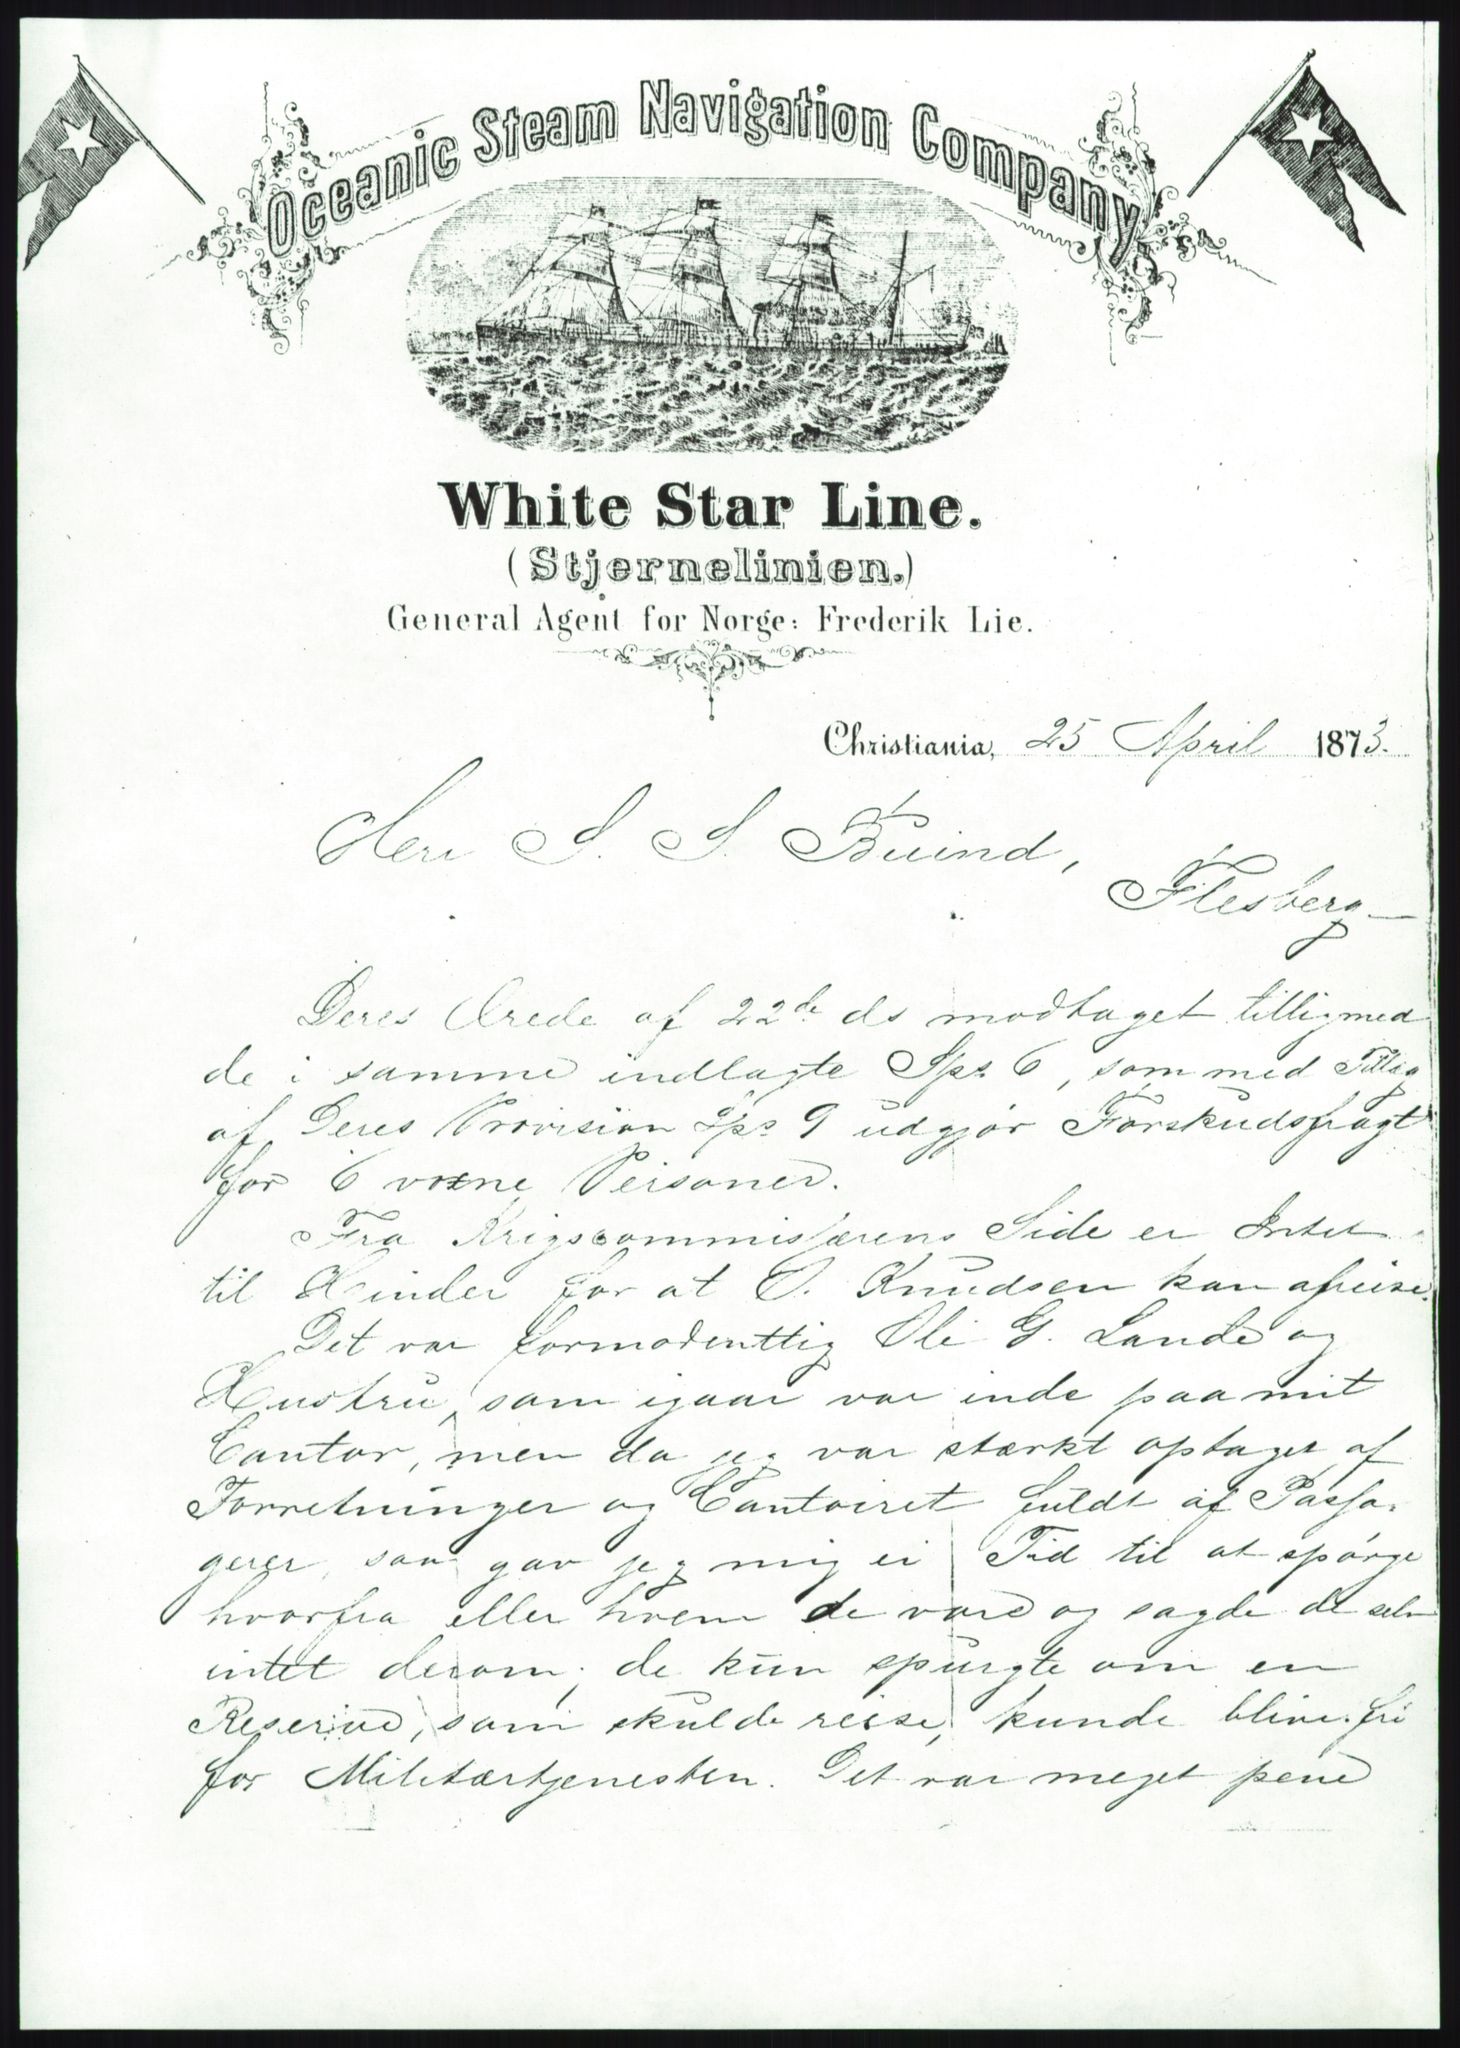 Oceanic Steam Navigation Company
White Star Line.
(Stjernelinien.)
General Agent for Norge: Frederik Lie.
Christiania, 25 April 1873.
Herr S. S. Buind,
Flesberg
Deres Ærede af 22de ds modtaget tilligemed
de i samme indlagte Sps 6, som med Tillæg
af Deres Provision Sps 9 udgjør Forskudsfragt
for 6 voxne Personer.
Fra Krigscommissærens Side er Intet
til Hinder for at O. Knudsen kan afreise.
Det var formodentlig Ole G. Lande og
Hustru, som igaar var inde paa mit
Contor, men da jeg var stærkt optaget af
Forretninger og Contoiret fuldt af Passa-
gerer, saa gav jeg mig ei Tid til at spørge
hvorfra eller hvem de vare og sagde de selv
intet derom; de kun spurgte om en
Reserve, som skulde reise, kunde blive fri
for Militærtjenesten. Det var meget pene